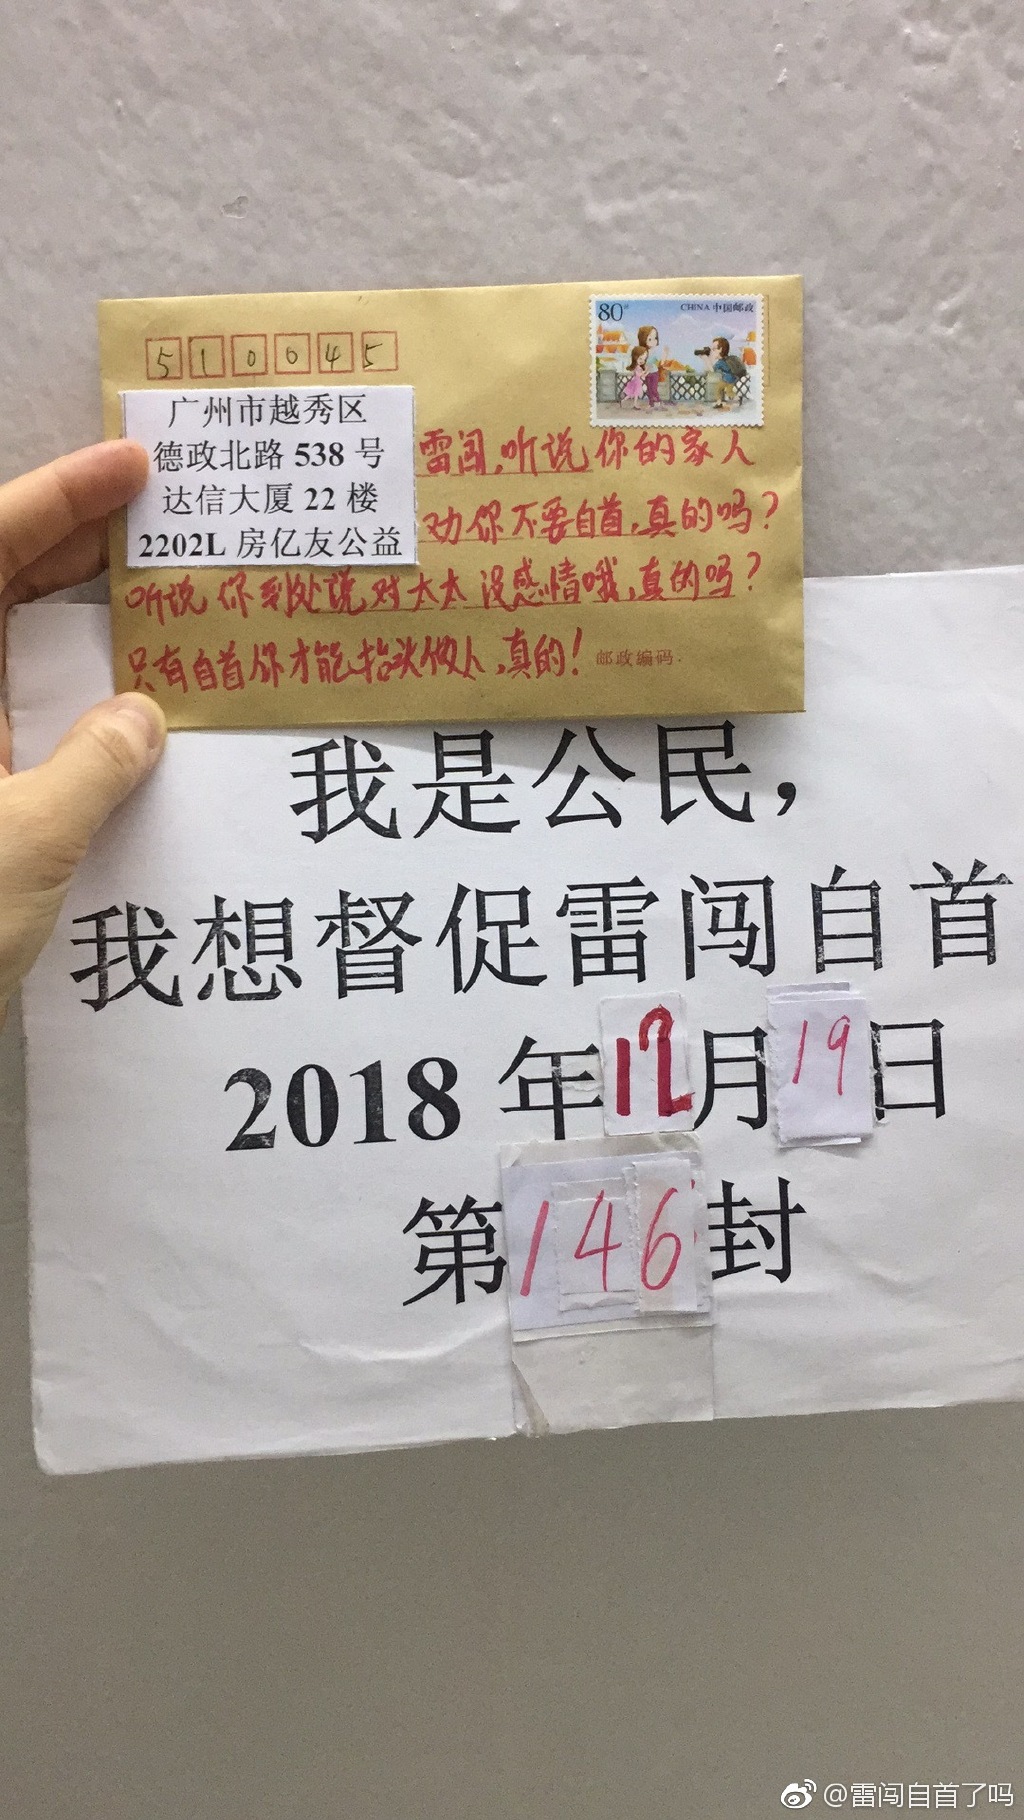 80分 CHINA 中国邮政
510045
广州市越秀区
德政北路 538 号
达信大厦 22 楼
2202L 房亿友公益
雷闯,听说你的家人
劝你不要自首,真的吗?
听说你到处说对太太没感情哦,真的吗?
只有自首你才能抬头做人,真的!
邮政编码
我是公民,
我想督促雷闯自首
2018 年12月19日
第146封
@雷闯自首了吗